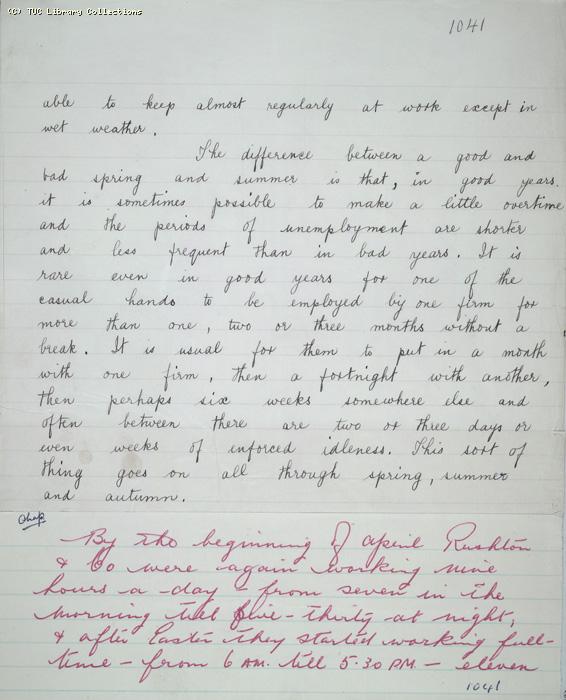 (C) TUC Library Collections
1041
able to keep almost regularly at work except in
wet weather.
The difference between a good and
bad spring and summer is that, in good years.
it is sometimes possible to make a little overtime
and the periods of unemployment are shorter
and less frequent than in bad years. It is
rare even in good years for one of the
casual hands to be employed by one firm for
more than one, two or three months without a
break. It is usual for them to put in a month
with one firm, then a fortnight with another,
then perhaps six weeks somewhere else and
often between there are two or three days or
even weeks of enforced idleness. This sort of
thing goes on all through spring, summer
and autumn.
Chap
By the beginning of April Rushton
& Co were again working nine
hours a day - from seven in the
morning till five-thirty at night,
& after Easter they started working full-
time - from 6 AM. till 5.30 PM - eleven
1041